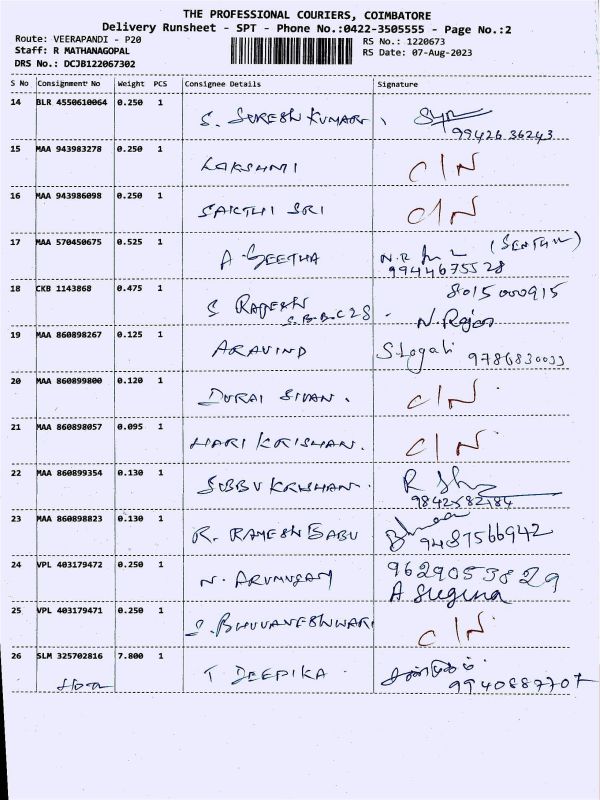 THE PROFESSIONAL COURIERS, COIMBATORE
Delivery Runsheet - SPT - Phone No.:0422-3505555 - Page No.:2
Route: VEERAPANDI - P20 RS No.: 1220673
Staff: R MATHANAGOPAL RS Date: 07-Aug-2023
DRS No.: DCJB122067302
S No Consignment No Weight PCS Consignee Details Signature
14 BLR 4550610064 0.250 1 S. SURESH KUMAR
9942636243
15 MAA 943983278 0.250 1 LAKSHMI C/N
16 MAA 943986098 0.250 1 SAKTHI SRI C/N
17 MAA 570450675 0.525 1 A. GEETHA N.R (SENTHIL)
9944675528
18 CKB 1143868 0.475 1 S RAJESH 8015000915
S.B.B.C 28. N. Rajan
19 MAA 860898267 0.125 1 ARAVIND S. Logali 9786830033
20 MAA 860899800 0.120 1 DURAI SIVAN. C/N.
21 MAA 860898057 0.095 1 HARI KRISHAN. C/N.
22 MAA 860899354 0.130 1 SUBBU KRISHAN. R
9842582184
23 MAA 860898823 0.130 1 R. RAMESH BABU 9487566942
24 VPL 403179472 0.250 1 N. ARUMUGAM 9629053829
A Suguna
25 VPL 403179471 0.250 1 S. BHUVANESHWARI C/N.
26 SLM 325702816 7.800 1 T. DEEPIKA.
9940887707